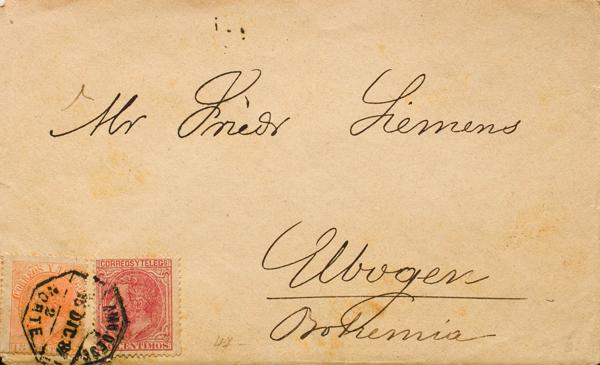 Mr Friedr Siemens
Elbogen
Bohemia
CORREOS Y TELEG
CENTIMOS
NORTE
2
DIC
15